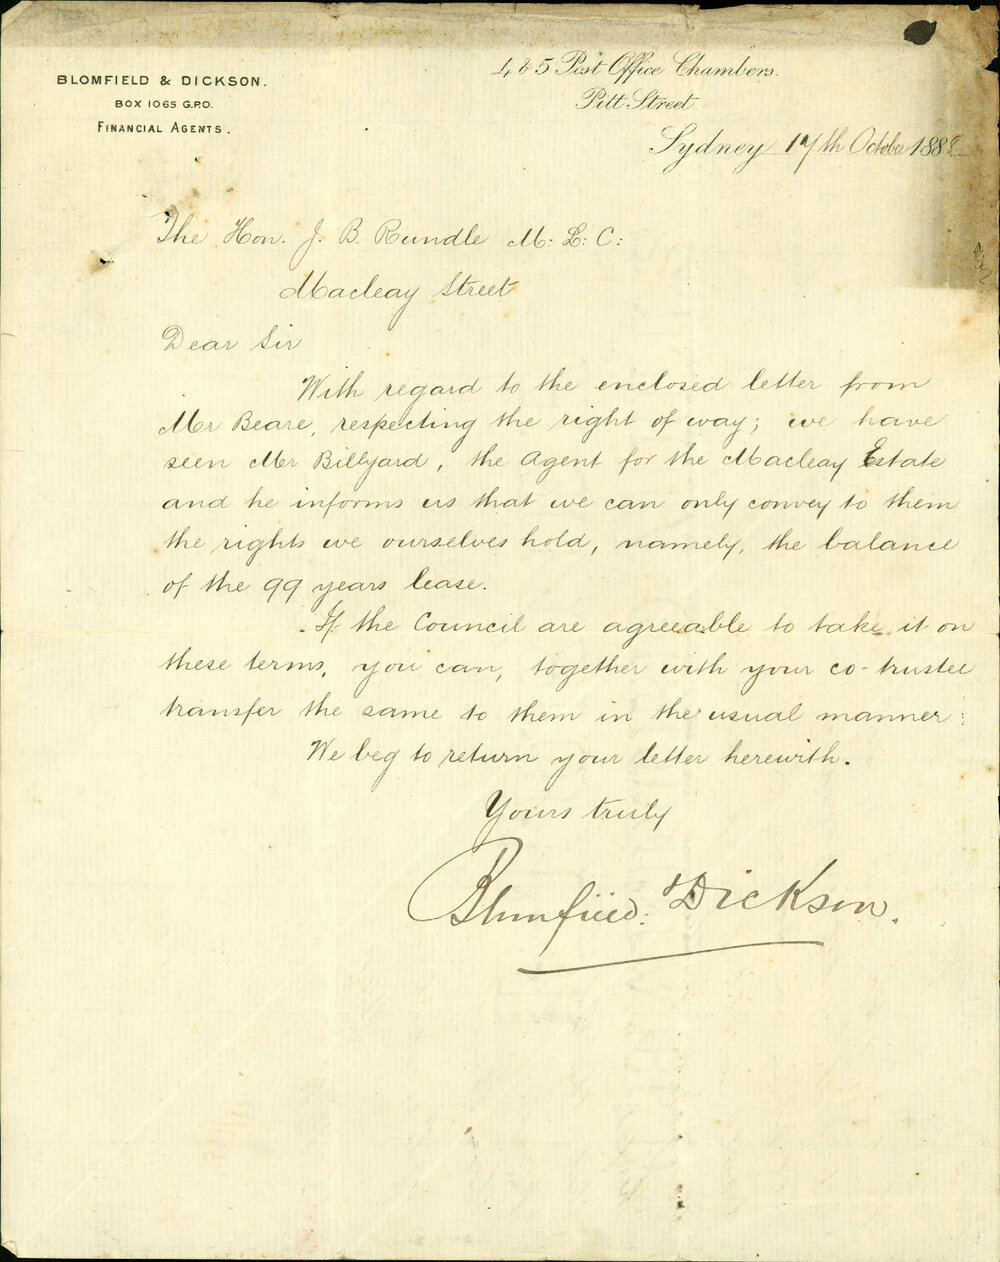 BLOMFIELD & DICKSON.
BOX 1065 G.P.O.
FINANCIAL AGENTS.
4 & 5 Post Office Chambers.
Pitt Street
Sydney 17th October 1888
The Hon. J. B. Rundle M: L: C:
Macleay Street
Dear Sir
With regard to the enclosed letter from
Mr Beare, respecting the right of way; we have
seen Mr Billyard, the Agent for the Macleay Estate
and he informs us that we can only convey to them
the rights we ourselves hold, namely, the balance
of the 99 years lease.
If the Council are agreeable to take it on
these terms, you can, together with your co-trustee
transfer the same to them in the usual manner:
We beg to return your letter herewith.
Yours truly
Blomfield & Dickson.